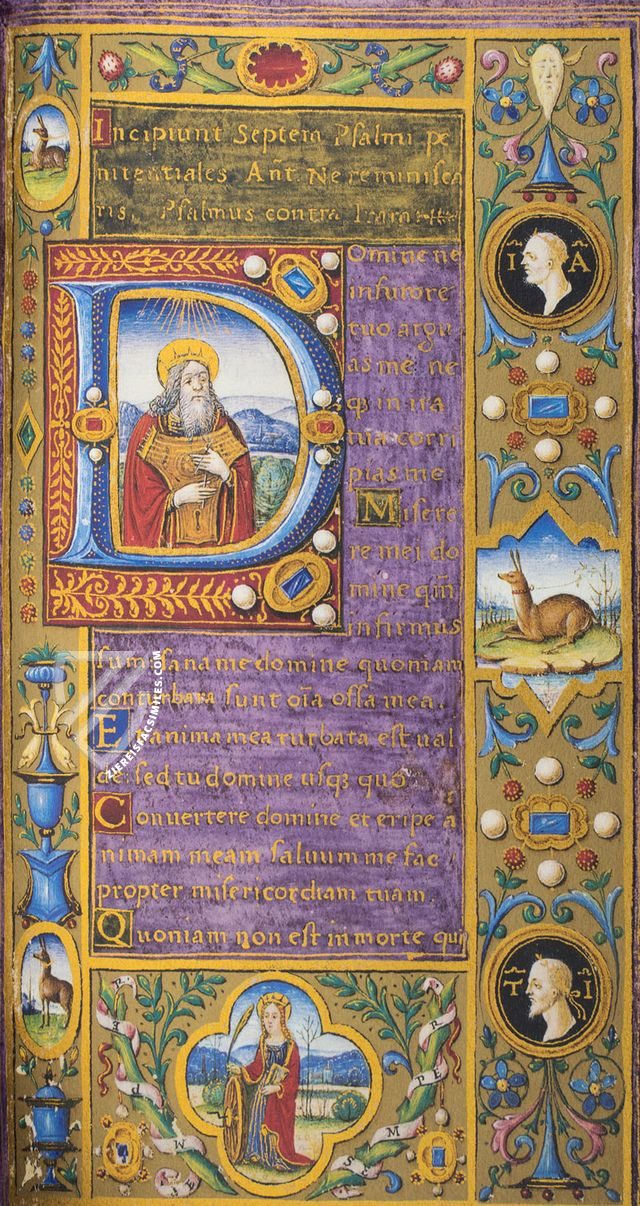 SEMPER
Incipiunt Septem Psalmi pe
nitentiales Añt. Ne reminisca
ris. Psalmus contra Iram
Domine ne
in furore
tuo argu
as me ne
q3 in ira
tua corri
pias me
Misere
re mei do
mine qm̃
infirmus
sum sana me domine quoniam
conturbata sunt oĩa ossa mea.
Et anima mea turbata est ual
de: sed tu domine usq3 quo
Convertere domine et eripe a
nimam meam saluum me fac
propter misericordiam tuam.
Quoniam non est in morte qui
I A
T I
ZIEREISFACSIMILES.COM